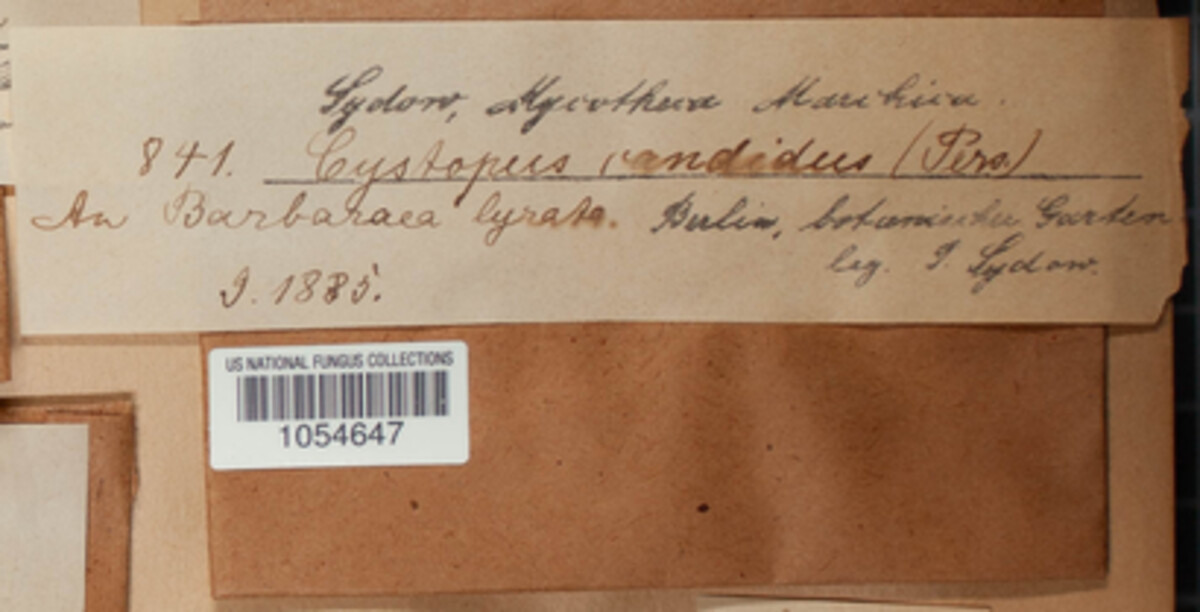 Sydow, Mycotheca Marchica.
841. Cystopus candidus (Pers.)
An Barbaraea lyrata. Berlin, botanischer Garten
leg. P. Sydow.
9. 1885.
US NATIONAL FUNGUS COLLECTIONS
1054647